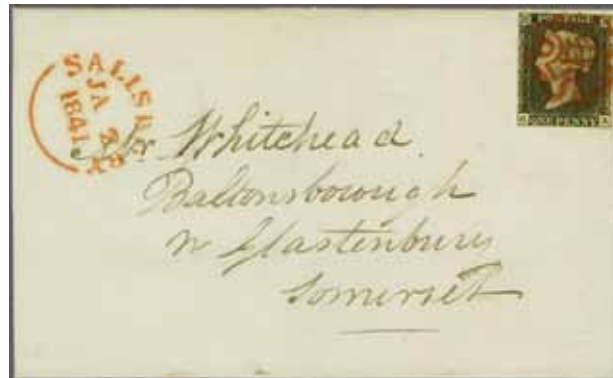 SALISBURY
JA
1841
POSTAGE
ONE PENNY
Mr Whitehead
Baltonsborough
nr Glastonbury
Somerset